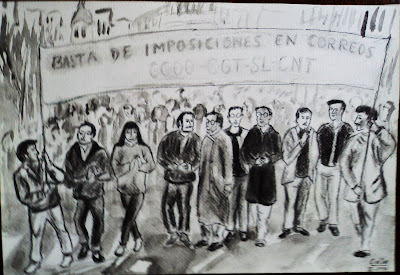 BASTA DE IMPOSICIONES EN CORREOS
CCOO-CGT-SL-CNT